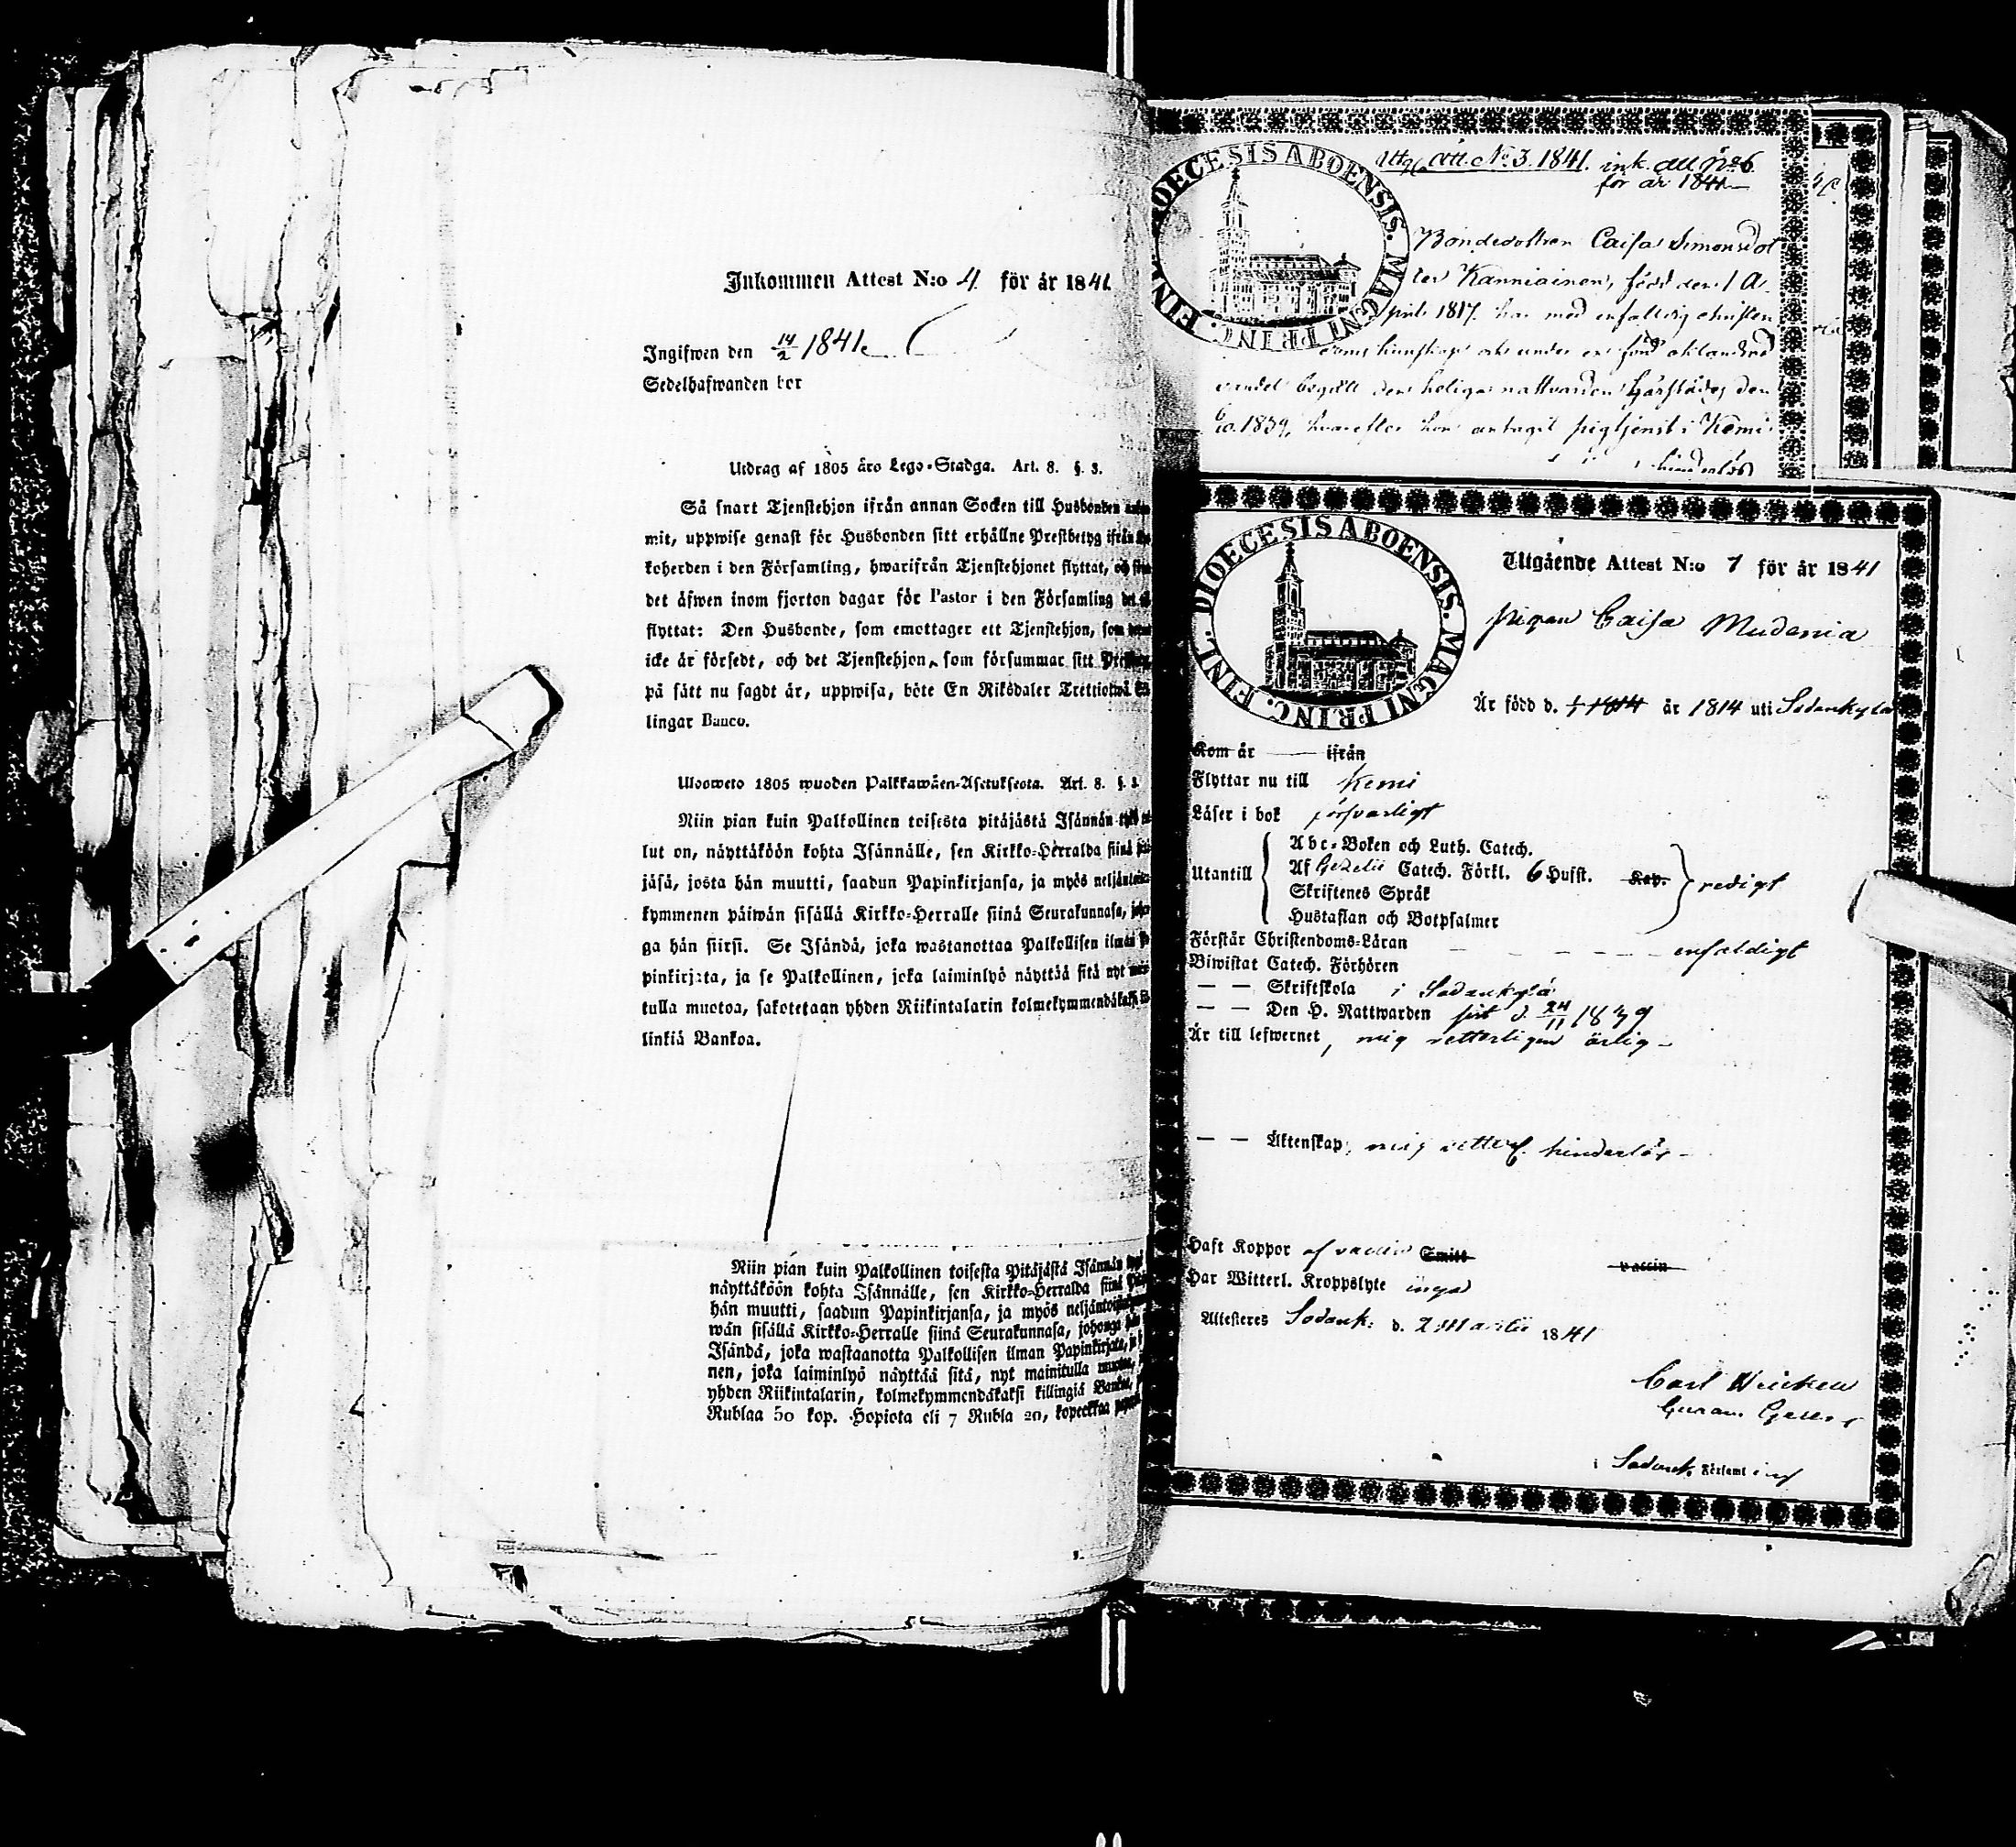 Inkommen Attest N:o 4 för år 1841
Ingifwen den 14/2 1841
Sedelhafwanden bor
Utdrag af 1805 års Lego-Stadga. Art. 8. §. 3.
Så snart Tjenstehjon ifrån annan Socken till Husbonden
mit, uppwise genast för Husbonden sitt erhållne Prestbetyg ifrån
koherden i den Församling, hwarifrån Tjenstehjonet flyttat,
det äfwen inom fjorton dagar för Pastor i den Församling
flyttat: Den Husbonde, som emottager ett Tjenstehjon, som
icke är försedt, och det Tjenstehjon, som försummar sitt
på sätt nu sagdt är, uppwisa, böte En Riksdaler Trettiotwå
lingar Banco.
Ulosweto 1805 wuoden Palkkawäen-Asetuksesta. Art. 8. §. 3.
Niin pian kuin Palkollinen toisesta pitäjästä Isännän
lut on, näyttäköön kohta Isännälle, sen Kirkko-Herralda siinä
jäsä, josta hän muutti, saadun Papinkirjansa, ja myös
kymmenen päiwän sisällä Kirkko-Herralle siinä Seurakunnasa,
ga hän siirsi. Se Isändä, joka wastanottaa Palkollisen ilman
pinkirjata, ja se Palkollinen, joka laiminlyö näyttää sitä nyt
tulla muotoa, sakotetaan yhden Riikintalarin
linkiä Bankoa.
Niin pian kuin Palkollinen toisesta Pitäjästä Isännän
näyttäköön kohta Isännälle, sen Kirkko-Herralda siinä
hän muutti, saadun Papinkirjansa, ja myös
wän sisällä Kirkko-Herralle siinä Seurakunnasa, johonga
Isändä, joka wastaanotta Palkollisen ilman Papinkirjata,
nen, joka laiminlyö näyttää sitä, nyt mainitulla
yhden Riikintalarin, kolmekymmendäkaksi killingiä
Rublaa 50 kop. Hopiota eli 7 Rubla 20, kopeekkaa
DIOECESIS ABOENSIS. MAGNI PRINC. FINL.
Att. No. 3. 1841. ink. att No 6
för år 1841
Bondedottren Caisa Simonsdot
ter Kanniainen, född den 1 A
pril 1817. har med enfaldig christen
doms kunskap och under en
vandel begått den heliga nattvarden härstädes den
1839, hvarefter hon antagit pigtjenst i Kemi
hinderlös
DIOECESIS ABOENSIS. MAGNI PRINC. FINL.
Utgående Attest N:o 7 för år 1841
pigan Caisa Mudenia
Är född d. 1/1 1814 år 1814 uti Sodankylä
Kom år — ifrån
Flyttar nu till Kemi
Läser i bok försvarligt
Utantill
Abc-Boken och Luth. Catech.
Af Gezelii Catech. Förkl. 6 Hufst. Kap.
Skriftenes Språk
Hustaflan och Botpsalmer
redigt
Förstår Christendoms-Läran — — — — enfaldigt
Biwistat Catech. Förhören
— — Skriftskola i Sodankylä
— — Den H. Nattwarden sist d. 24/11 1839
Är till lefwernet, mig vetterligen ärlig
— — Äktenskap, mig vetterl. hinderlös
Haft Koppor af vaccin Smitt vaccin
Har Witterl. Kroppslyte inga
Attesteres Sodank: d. 2 Martii 1841
Carl
i Sodank. Församling